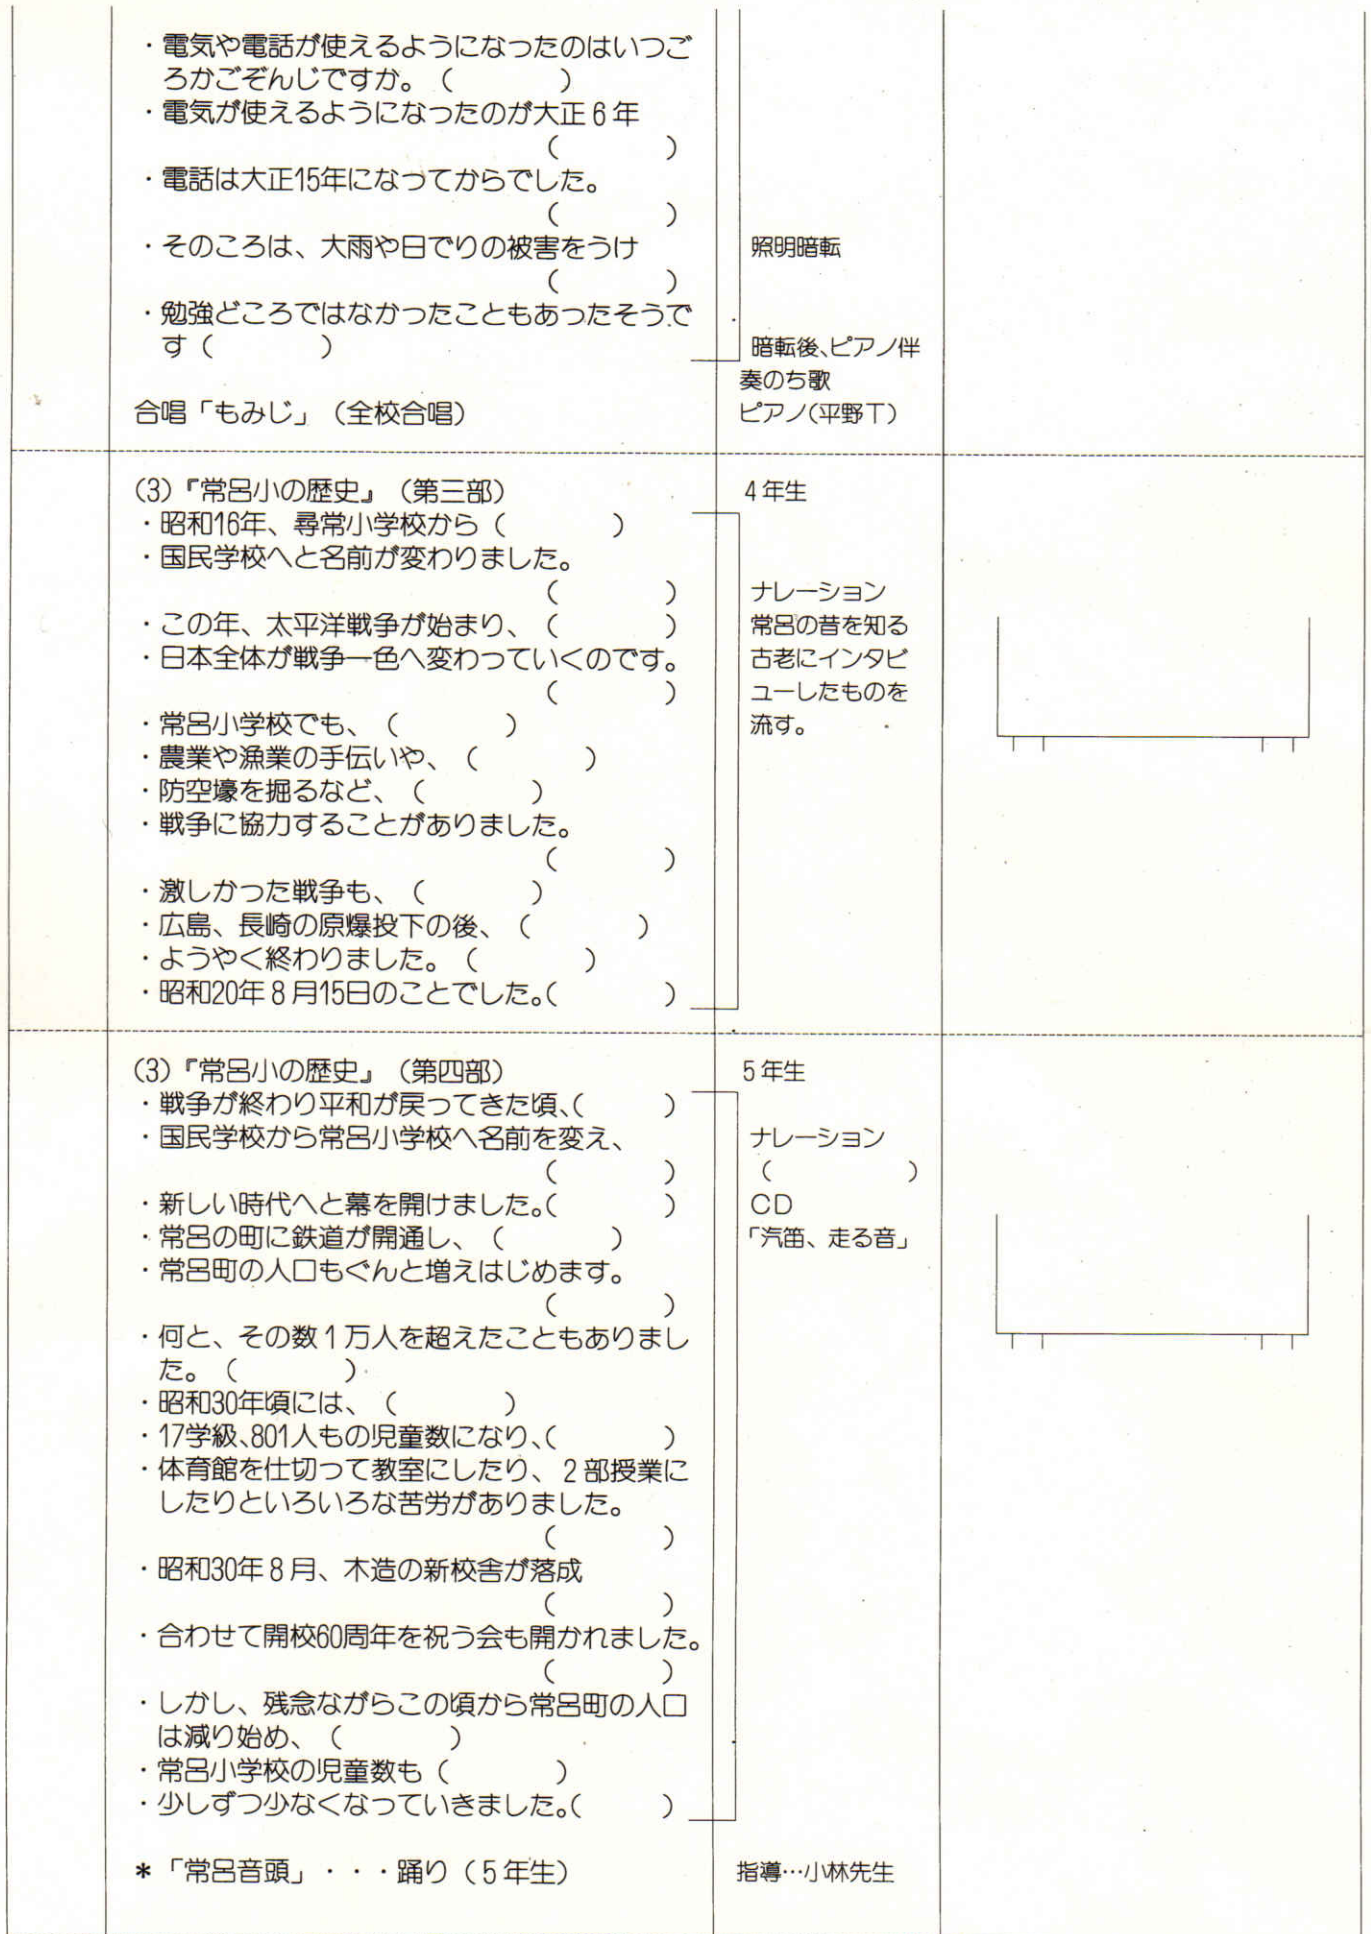 ・電気や電話が使えるようになったのはいつご
ろかごぞんじですか。（　　　　）
・電気が使えるようになったのが大正６年
（　　　　）
・電話は大正15年になってからでした。
（　　　　）
・そのころは、大雨や日でりの被害をうけ
（　　　　）
・勉強どころではなかったこともあったそうで
す（　　　　）
合唱「もみじ」（全校合唱）
照明暗転
暗転後、ピアノ伴
奏のち歌
ピアノ（平野Ｔ）
(3)『常呂小の歴史』（第三部）
・昭和16年、尋常小学校から（　　　　）
・国民学校へと名前が変わりました。
（　　　　）
・この年、太平洋戦争が始まり、（　　　　）
・日本全体が戦争一色へ変わっていくのです。
（　　　　）
・常呂小学校でも、（　　　　）
・農業や漁業の手伝いや、（　　　　）
・防空壕を掘るなど、（　　　　）
・戦争に協力することがありました。
（　　　　）
・激しかった戦争も、（　　　　）
・広島、長崎の原爆投下の後、（　　　　）
・ようやく終わりました。（　　　　）
・昭和20年８月15日のことでした。（　　　　）
４年生
ナレーション
常呂の昔を知る
古老にインタビ
ューしたものを
流す。
(3)『常呂小の歴史』（第四部）
・戦争が終わり平和が戻ってきた頃、（　　　）
・国民学校から常呂小学校へ名前を変え、
（　　　　）
・新しい時代へと幕を開けました。（　　　　）
・常呂の町に鉄道が開通し、（　　　　）
・常呂町の人口もぐんと増えはじめます。
（　　　　）
・何と、その数１万人を超えたこともありまし
た。（　　　　）
・昭和30年頃には、（　　　　）
・17学級、801人もの児童数になり、（　　　　）
・体育館を仕切って教室にしたり、２部授業に
したりといろいろな苦労がありました。
（　　　　）
・昭和30年８月、木造の新校舎が落成
（　　　　）
・合わせて開校60周年を祝う会も開かれました。
（　　　　）
・しかし、残念ながらこの頃から常呂町の人口
は減り始め、（　　　　）
・常呂小学校の児童数も（　　　　）
・少しずつ少なくなっていきました。（　　　）
＊「常呂音頭」・・・踊り（５年生）
５年生
ナレーション
（　　　　　）
ＣＤ
「汽笛、走る音」
指導…小林先生